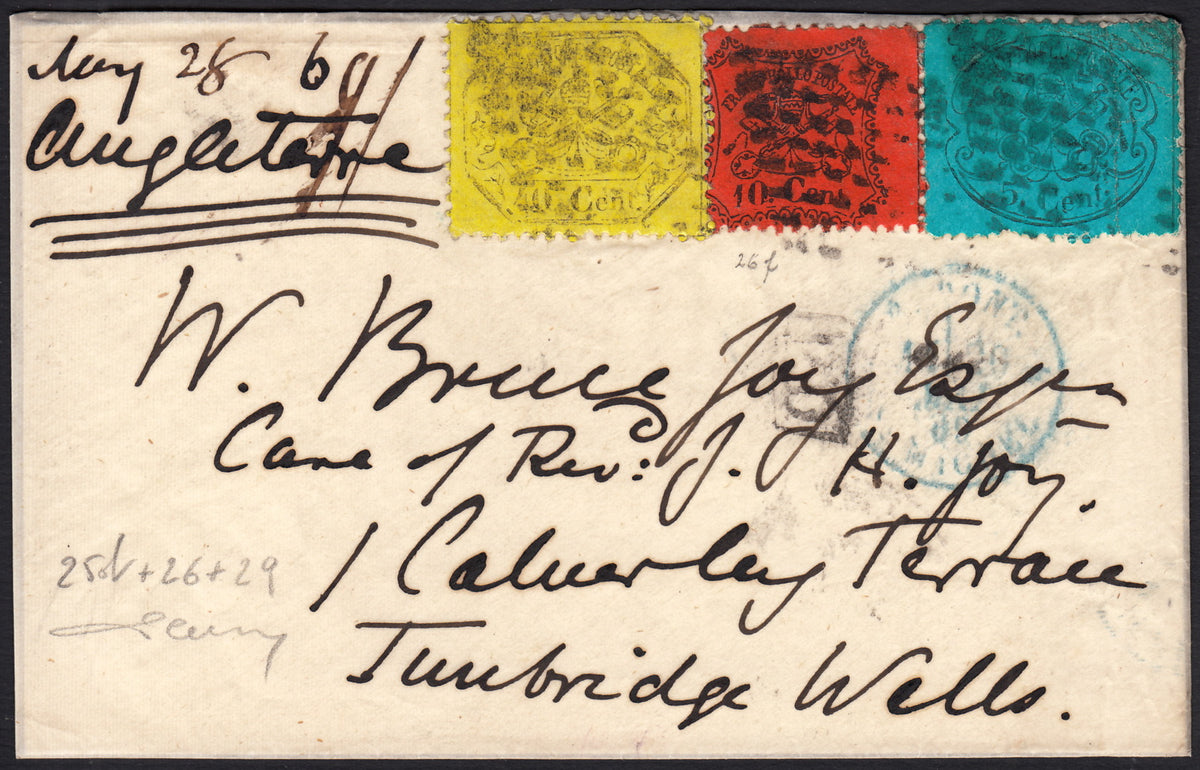 May 28 69
Angleterre
FRANCO BOLLO POSTALE
40. Cent.
10. Cent.
5. Cent.
26 f
ROME
W. Bruce Joy Esqre
Care of Revd: J. H. Joy.
1 Calverley Terrace
Tunbridge Wells.
25 +26+29